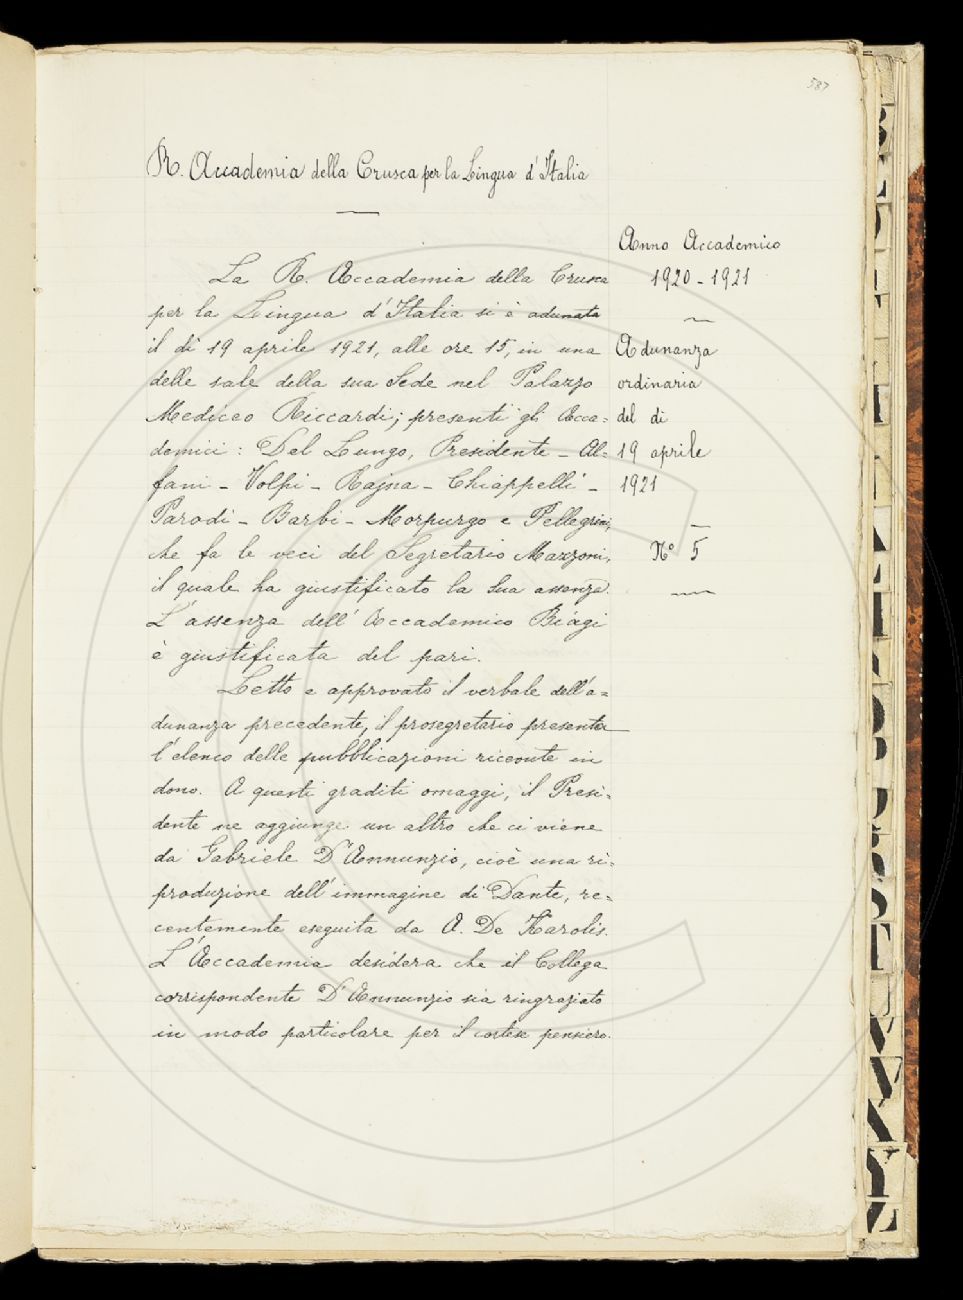 587
R. Accademia della Crusca per la Lingua d'Italia
Anno Accademico
1920-1921
Adunanza
ordinaria
del dì
19 aprile
1921
N° 5
La R. Accademia della Crusca
per la Lingua d'Italia si è adunata
il dì 19 aprile 1921, alle ore 15, in una
delle sale della sua Sede nel Palazzo
Mediceo Riccardi; presenti gli Acca=
demici: Del Lungo, Presidente - Al=
fani - Volpi - Rajna - Chiappelli -
Parodi - Barbi - Morpurgo e Pellegrini,
che fa le veci del Segretario Mazzoni,
il quale ha giustificato la sua assenza.
L'assenza dell'Accademico Biagi
è giustificata del pari.
Letto e approvato il verbale dell'a=
dunanza precedente, il prosegretario presenta
l'elenco delle pubblicazioni ricevute in
dono. A questi graditi omaggi, il Presi=
dente ne aggiunge un altro che ci viene
da Gabriele D'Annunzio, cioè una ri=
produzione dell'immagine di Dante, re=
centemente eseguita da A. De Karolis.
L'Accademia desidera che il Collega
corrispondente D'Annunzio sia ringraziato
in modo particolare per il cortese pensiero.